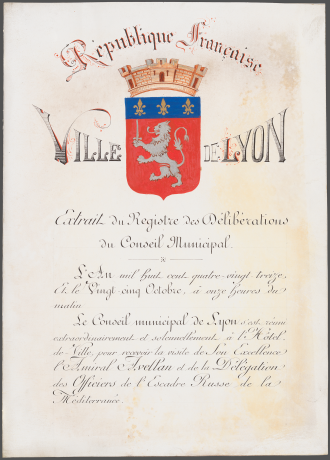 République Française
VILLE DE LYON
Extrait du Registre des Délibérations
du Conseil Municipal.
L'An mil huit cent quatre-vingt treize,
Et le Vingt-cinq Octobre, à onze heures du
matin
Le Conseil municipal de Lyon s'est réuni
extraordinairement et solennellement à l'Hôtel-
de-Ville, pour recevoir la visite de Son Excellence
l'Amiral Avellan et de la Délégation
des Officiers de l'Escadre Russe de la
Méditerranée.